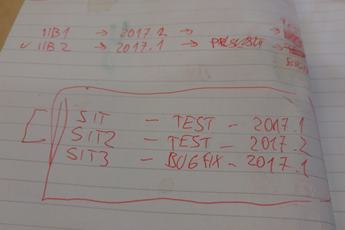 IIB1 → 2017.2 →
✓ IIB2 → 2017.1 →
SIT - TEST - 2017.1
SIT2 - TEST - 2017.2
SIT3 - BUGFIX - 2017.1